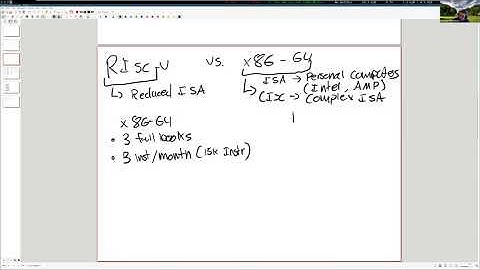 RISC V vs. x86-64
ISA → Personal computers
(Intel, AMP)
↳ Reduced ISA
CISC → Complex ISA
x86-64
• 3 full books
• 3 inst/month (15k Instr)